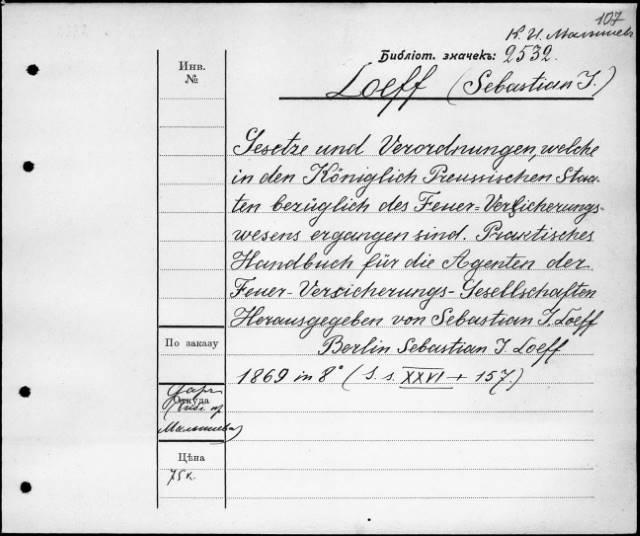 107
К. И. Малышев
Библіот. значекъ: 2532.
Инв.
№
Loeff (Sebastian J.)
Gesetze und Verordnungen, welche
in den Königlich Preussischen Staa-
ten bezüglich des Feuer=Versicherungs-
wesens ergangen sind. Praktisches
Handbuch für die Agenten der
Feuer-Versicherungs-Gesellschaften
Herausgegeben von Sebastian J. Loeff
Berlin Sebastian J. Loeff
1869 in 8° (S. s. XXVI + 157.)
По заказу
Откуда
Малышева
Цѣна
75к.